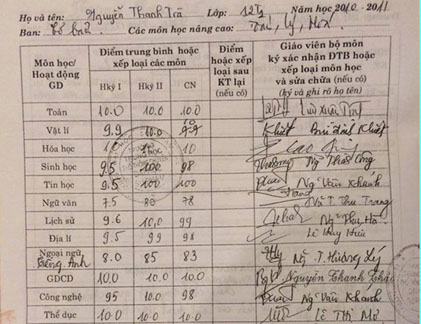 Họ và tên: Nguyễn Thanh Trà Lớp: 12 Năm học 2010 - 2011
Ban: Cơ bản Các môn học nâng cao: Toán, Lý, Hóa
Môn học/ Hoạt động GD
Điểm trung bình hoặc xếp loại các môn
Hkỳ I Hkỳ II CN
Điểm hoặc xếp loại sau KT lại (nếu có)
Giáo viên bộ môn ký xác nhận ĐTB hoặc xếp loại môn học và sửa chữa (nếu có)
(ký và ghi rõ họ tên)
Toán 10.0 10.0 10.0
Vật lí 9.9 10.0 Khiết Bùi Đình Khiết
Hóa học 10
Sinh học 9.5 10.0 9.8 Ng
Tin học 9.5 10.0 10.0 Ng Văn Khánh
Ngữ văn 7.5 8.0 7.8 Võ T. Thu Trang
Lịch sử 9.6 10.0 9.9 Ng Thu Hà
Địa lí 9.5 9.9 9.8 Lê Thúy
Ngoại ngữ: Tiếng Anh 8.0 8.5 8.3 Ng. T. Hương Lý
GDCD 10.0 10.0 10.0 Nguyễn Thanh
Công nghệ 9.5 10.0 9.8 Ng Văn Khánh
Thể dục 10.0 10.0 10.0 Lê Thị Mơ